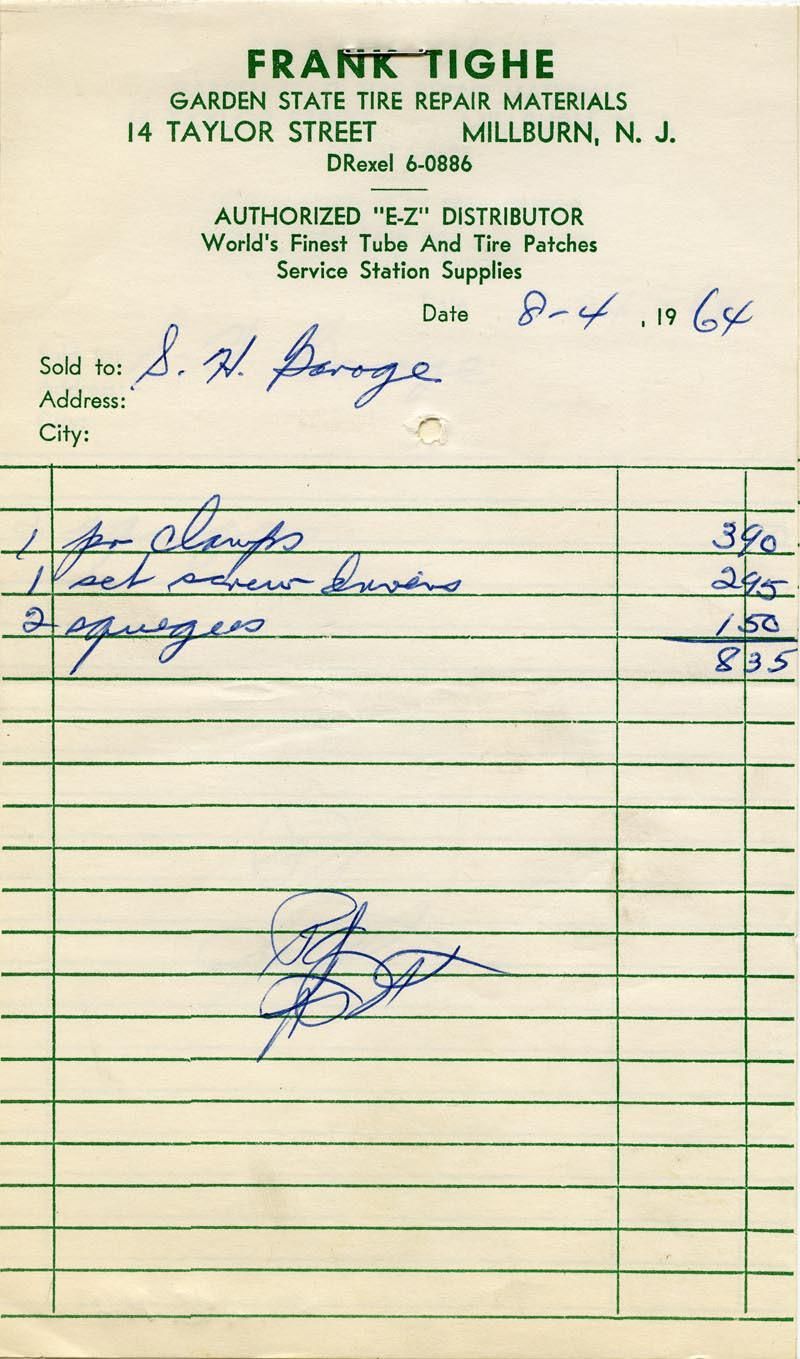 FRANK TIGHE
GARDEN STATE TIRE REPAIR MATERIALS
14 TAYLOR STREET MILLBURN, N. J.
DRexel 6-0886
AUTHORIZED "E-Z" DISTRIBUTOR
World's Finest Tube And Tire Patches
Service Station Supplies
Date 8-4, 19 64
Sold to: S. H. Garage
Address:
City:
1 pr clamps 3 90
1 set screw drivers 2 95
2 squegees 1 50
8 35